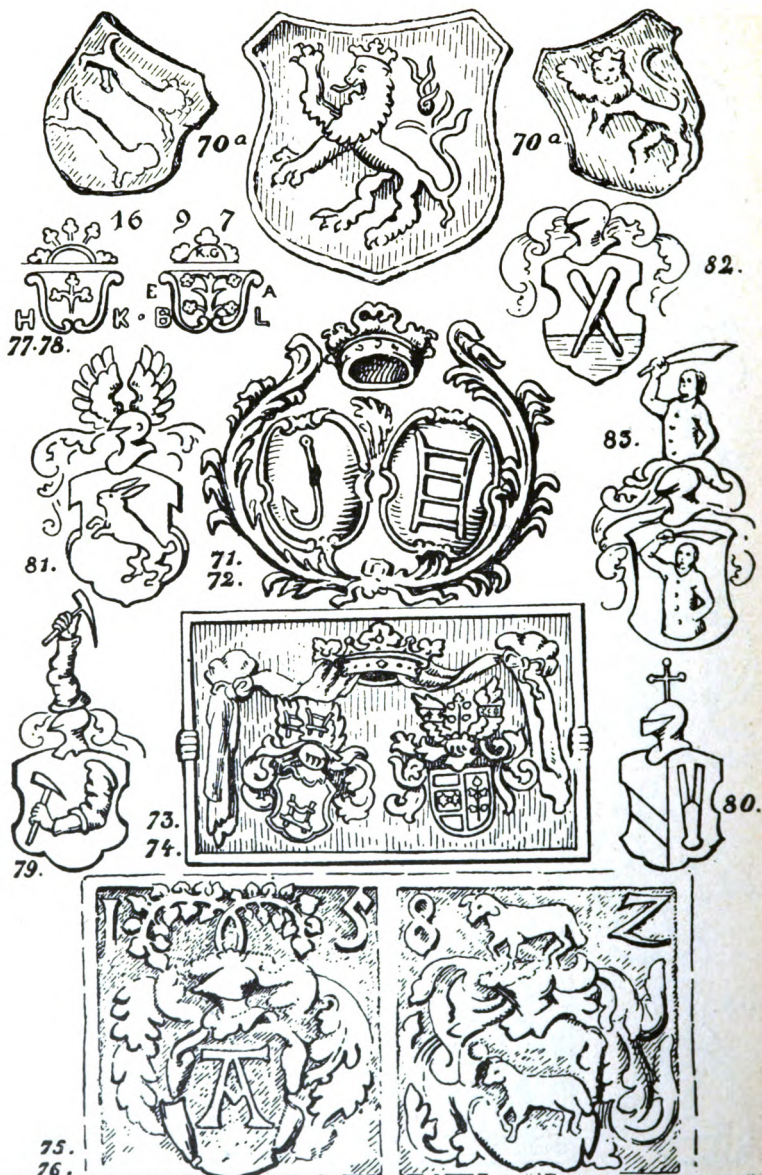 70a
70a
16 9 7
K.G
E A
H K · B L
77.78.
82.
83.
81.
71.
72.
79.
73.
74.
80.
1 5 8 Z
A
75.
76.